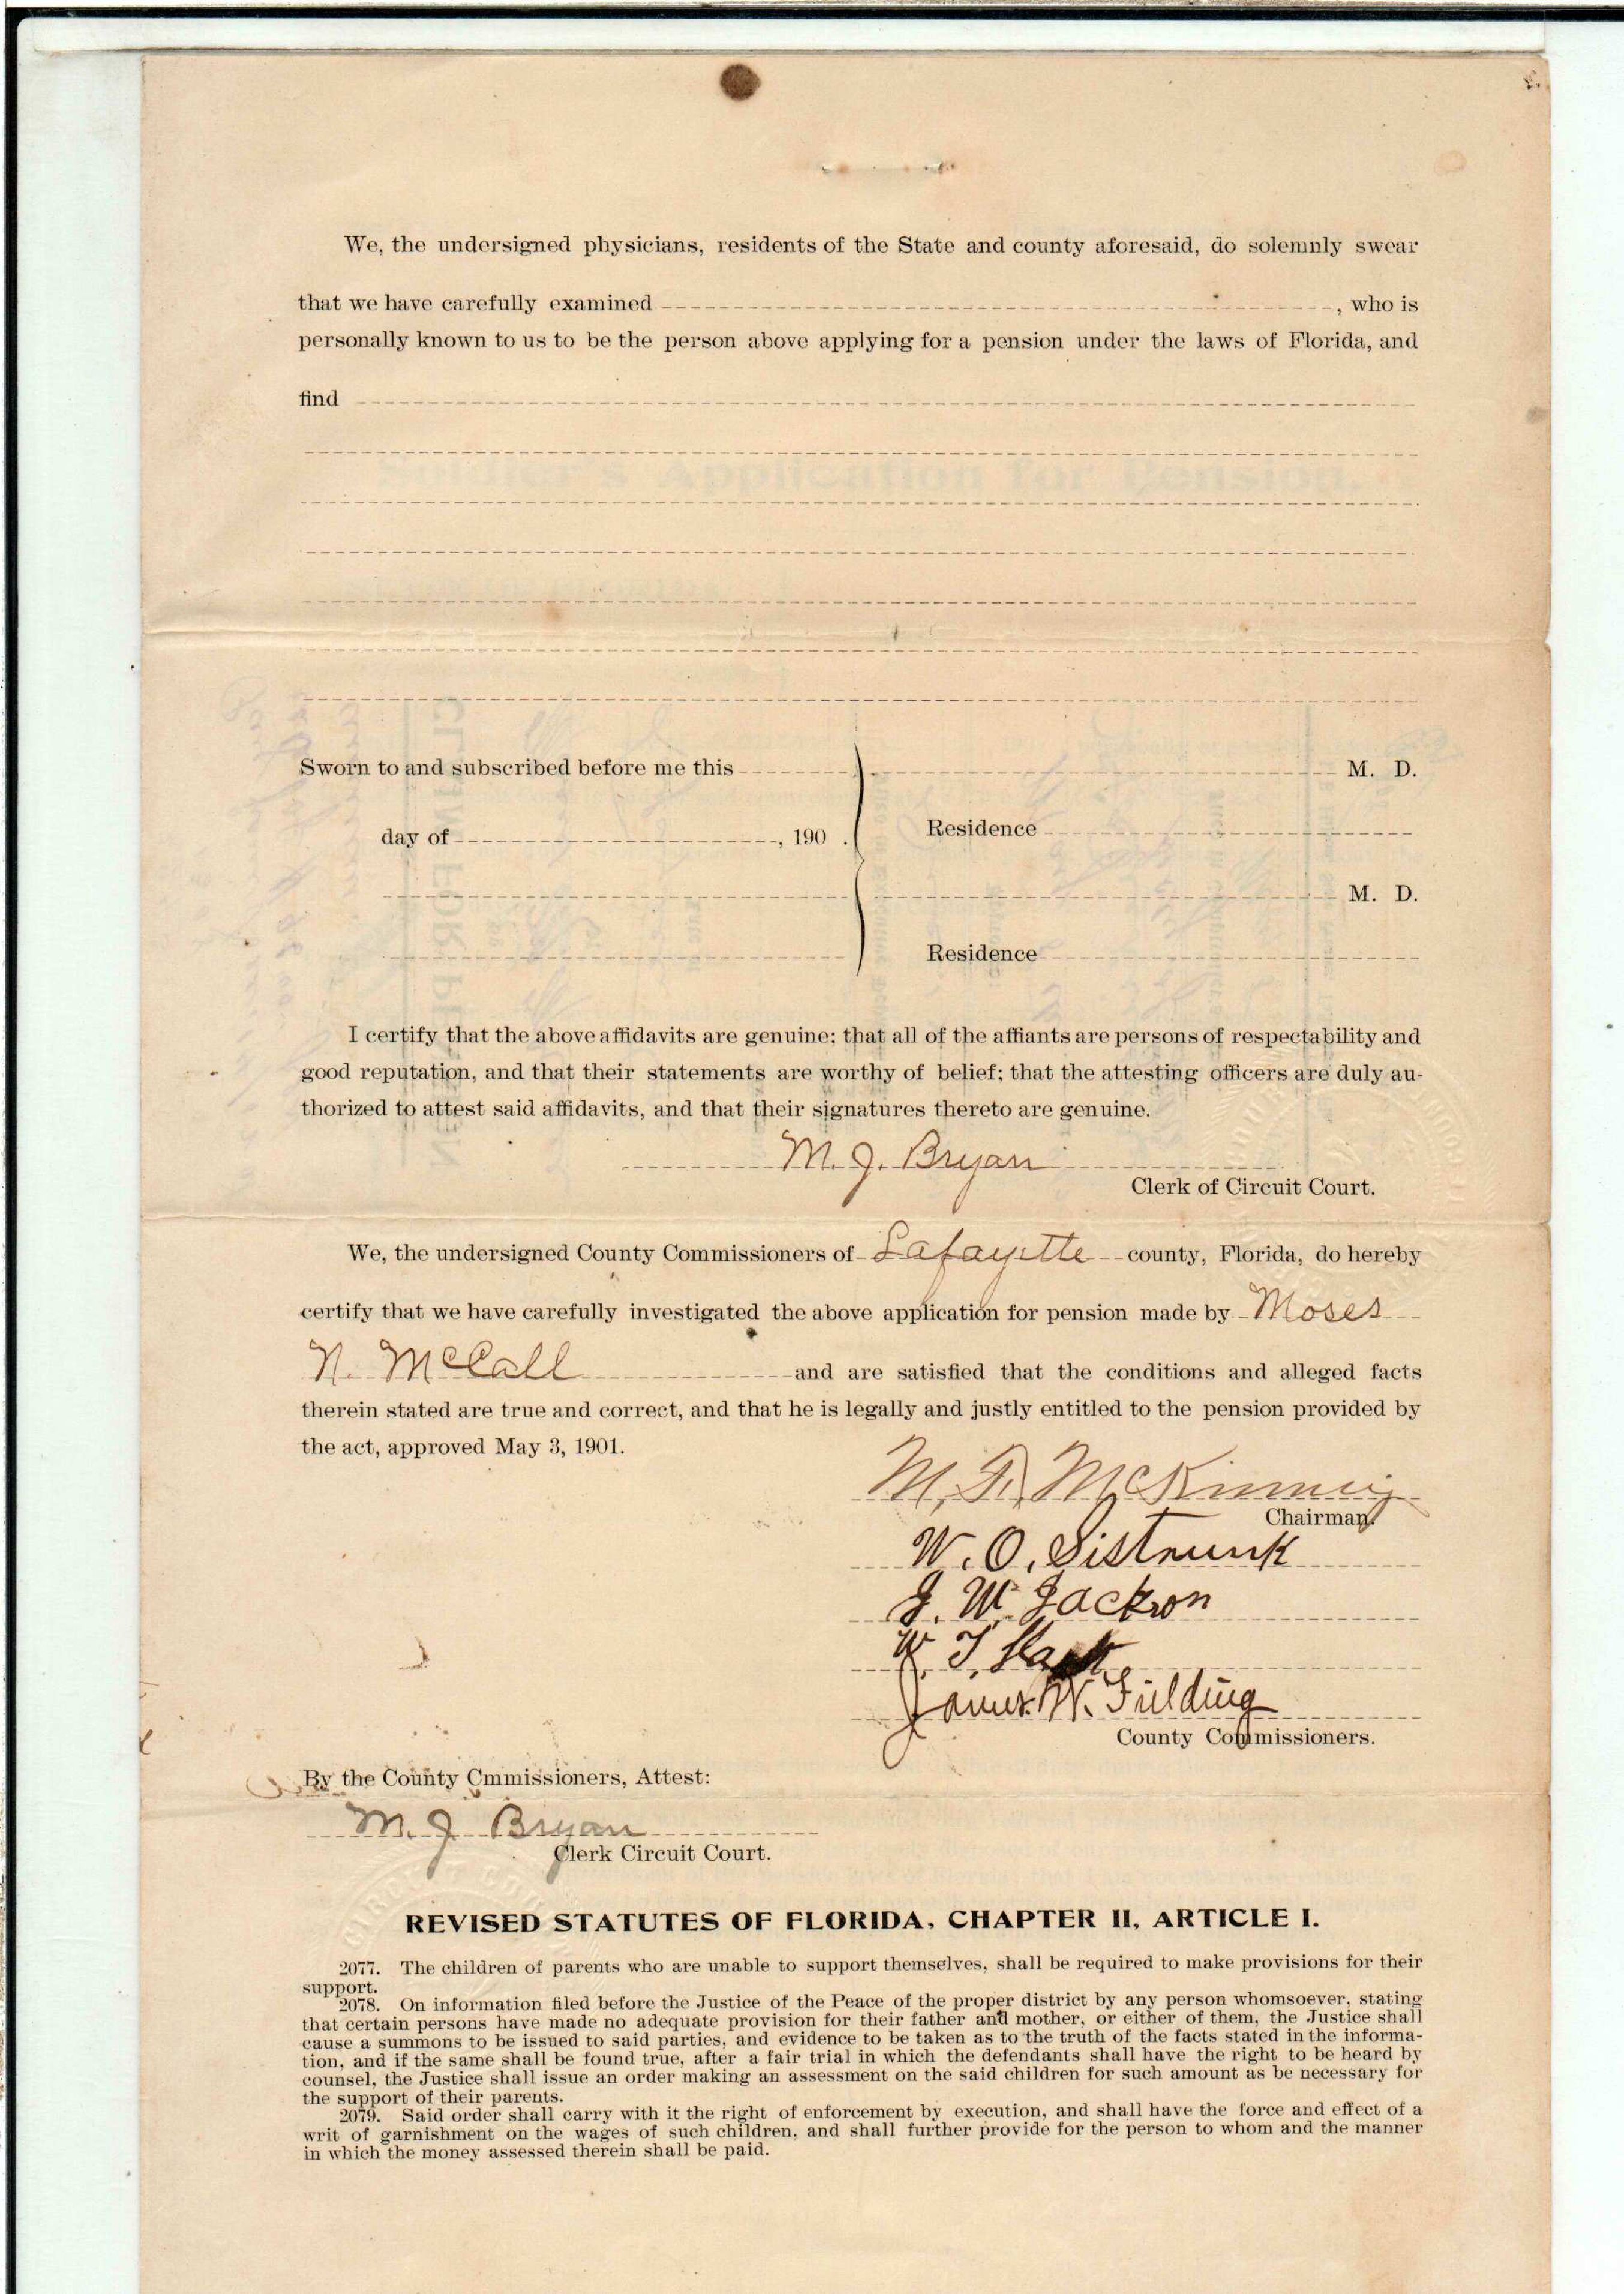 We, the undersigned physicians, residents of the State and county aforesaid, do solemnly swear
that we have carefully examined , who is
personally known to us to be the person above applying for a pension under the laws of Florida, and
find
Soldier's Application for Pension.
Sworn to and subscribed before me this M. D.
day of , 190 . Residence
M. D.
Residence
I certify that the above affidavits are genuine; that all of the affiants are persons of respectability and
good reputation, and that their statements are worthy of belief; that the attesting officers are duly au-
thorized to attest said affidavits, and that their signatures thereto are genuine.
M. J. Bryan
Clerk of Circuit Court.
We, the undersigned County Commissioners of Lafayette county, Florida, do hereby
certify that we have carefully investigated the above application for pension made by Moses
N. McCall and are satisfied that the conditions and alleged facts
therein stated are true and correct, and that he is legally and justly entitled to the pension provided by
the act, approved May 3, 1901.
M. McKinney
Chairman.
W. O. Sistrunk
J. W. Jackson
W. T.
James W. Fielding
County Commissioners.
By the County Cmmissioners, Attest:
M. J. Bryan
Clerk Circuit Court.
REVISED STATUTES OF FLORIDA, CHAPTER II, ARTICLE I.
2077. The children of parents who are unable to support themselves, shall be required to make provisions for their
support.
2078. On information filed before the Justice of the Peace of the proper district by any person whomsoever, stating
that certain persons have made no adequate provision for their father and mother, or either of them, the Justice shall
cause a summons to be issued to said parties, and evidence to be taken as to the truth of the facts stated in the informa-
tion, and if the same shall be found true, after a fair trial in which the defendants shall have the right to be heard by
counsel, the Justice shall issue an order making an assessment on the said children for such amount as be necessary for
the support of their parents.
2079. Said order shall carry with it the right of enforcement by execution, and shall have the force and effect of a
writ of garnishment on the wages of such children, and shall further provide for the person to whom and the manner
in which the money assessed therein shall be paid.